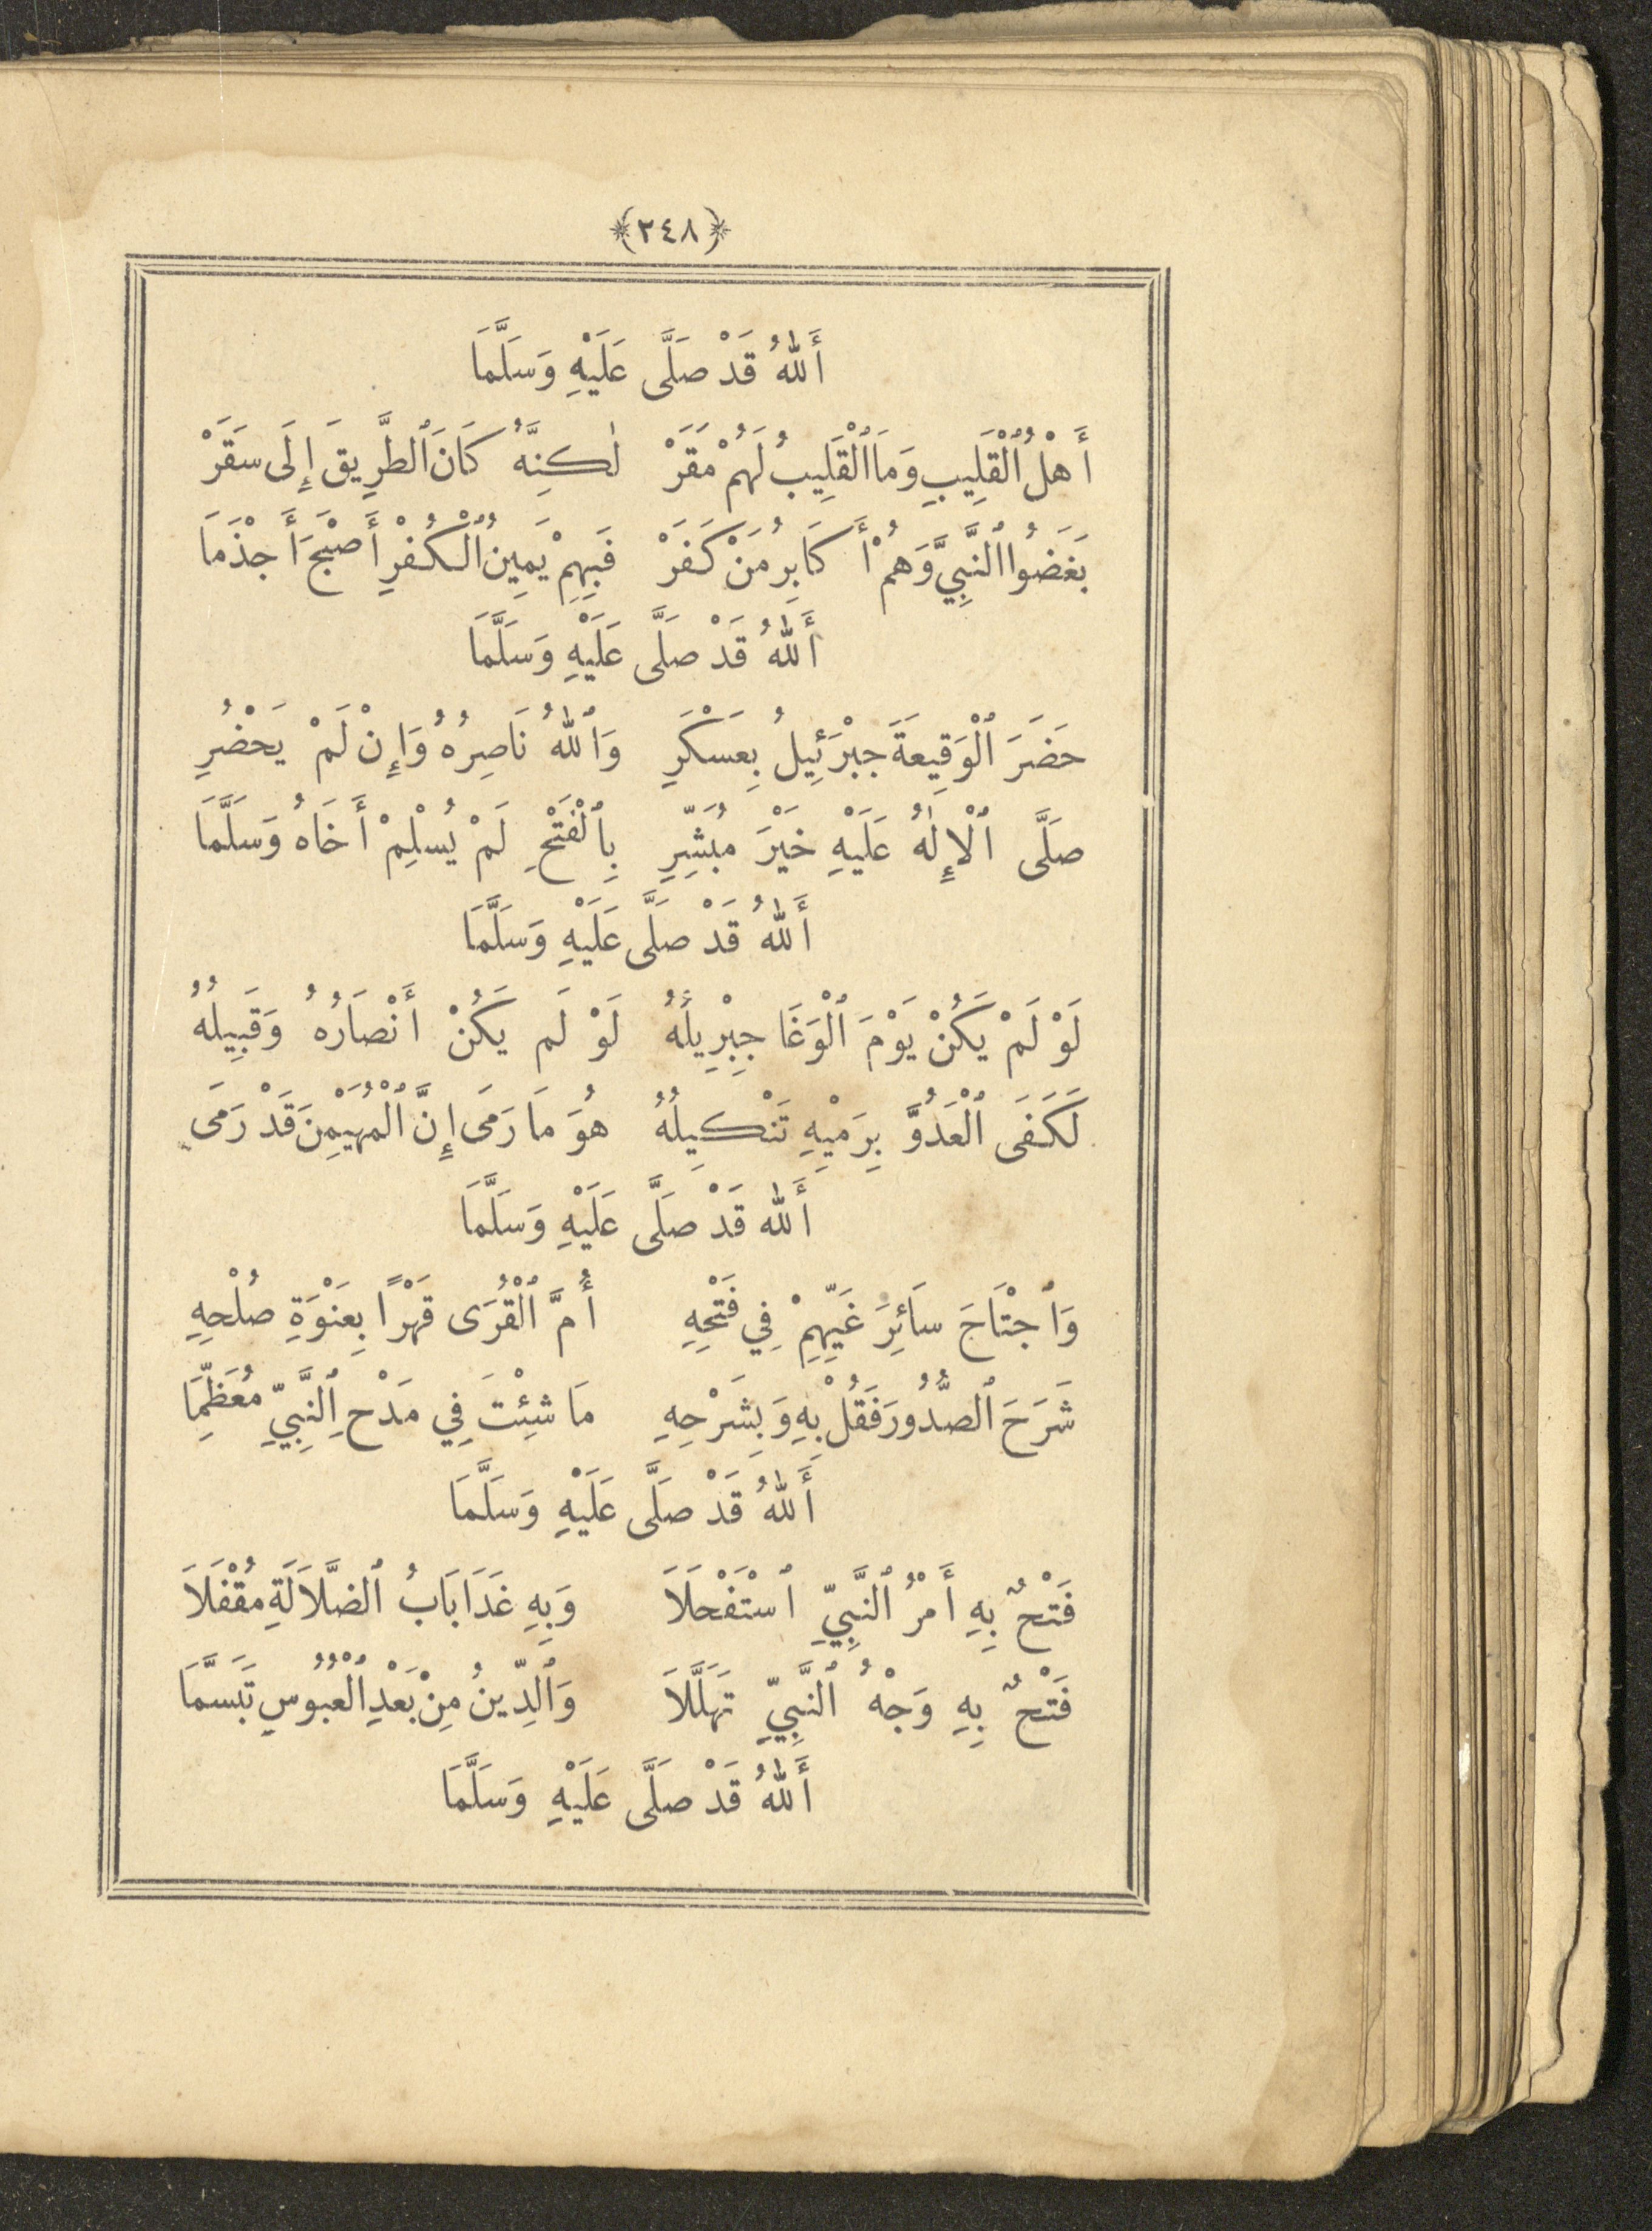 ﴿٢٤٨﴾
أَللهُ قَدْ صَلَّى عَلَيْهِ وَسَلَّمَا
أَهْلُ ٱلْقَلِيبِ وَمَا ٱلْقَلِيبُ لَهُمْ مَقَرْ لٰكِنَّهُ كَانَ ٱلطَّرِيقَ إِلَى سَقَرْ
بَغَضُوا ٱلنَّبِيَّ وَهُمْ أَكَابِرُ مَنْ كَفَرْ فَبِهِمْ يَمِينُ ٱلْكُفْرِ أَصْبَحَ أَجْذَمَا
أَللهُ قَدْ صَلَّى عَلَيْهِ وَسَلَّمَا
حَضَرَ ٱلْوَقِيعَةَ جِبْرَئِيلُ بِعَسْكَرِ وَٱللهُ نَاصِرُهُ وَإِنْ لَمْ يَحْضُرِ
صَلَّى ٱلْإِلٰهُ عَلَيْهِ خَيْرَ مُبَشِّرِ بِٱلْفَتْحِ لَمْ يُسْلِمْ أَخَاهُ وَسَلَّمَا
أَللهُ قَدْ صَلَّى عَلَيْهِ وَسَلَّمَا
لَوْ لَمْ يَكُنْ يَوْمَ ٱلْوَغَا جِبْرِيلُهُ لَوْ لَم يَكُنْ أَنْصَارُهُ وَقَبِيلُهُ
لَكَفَى ٱلْعَدُوَّ بِرَمْيِهِ تَنْكِيلُهُ هُوَ مَا رَمَى إِنَّ ٱلْمُهَيْمِنَ قَدْ رَمَى
أَلله قَدْ صَلَّى عَلَيْهِ وَسَلَّمَا
وَٱجْتَاحَ سَائِرَ غَيِّهِمْ فِي فَتْحِهِ أُمَّ ٱلْقُرَى قَهْرًا بِعَنْوَةِ صُلْحِهِ
شَرَحَ ٱلصُّدُورَ فَقُلْ بِهِ وَبِشَرْحِهِ مَا شِئْتَ فِي مَدْحِ ٱلنَّبِيِّ مُعَظِّمَا
أَللهُ قَدْ صَلَّى عَلَيْهِ وَسَلَّمَا
فَتْحٌ بِهِ أَمْرُ ٱلنَّبِيِّ ٱسْتَفْحَلَا وَبِهِ غَدَا بَابُ ٱلضَّلَالَةِ مُقْفَلَا
فَتْحٌ بِهِ وَجْهُ ٱلنَّبِيِّ تَهَلَّلَا وَٱلدِّينُ مِنْ بَعْدِ ٱلْعُبُوسِ تَبَسَّمَا
أَللهُ قَدْ صَلَّى عَلَيْهِ وَسَلَّمَا